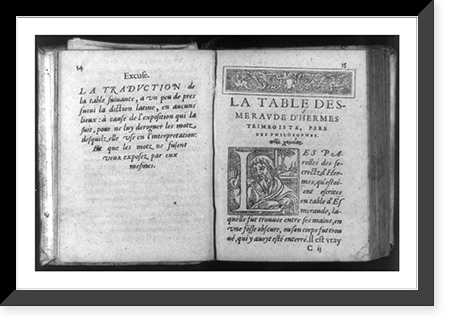 14
Excuse.
LA TRADVCTION de
la table suiuante, a vn peu de pres
suiui la diction latine, en aucuns
lieux: à cause de l'exposition qui la
suit, pour ne luy deroguer les motz,
desquelz elle vse en l'interpretation:
Et que les motz ne fusent
veux exposez par eux
mesmes.
15
LA TABLE DES-
MERAVDE D'HERMES
TRIMEGISTE, PERE
DES PHILOSOPHES.
LES PA-
rolles des se-
cretz d'Her-
mes, qui estoit
escrites
en table d'Es
meraude, la-
quelle fut trouuee entre ses mains, en
vne fosse obscure, ou son corps fut trou
ué, qui y auoyt esté enterré. Il est vray
C ij